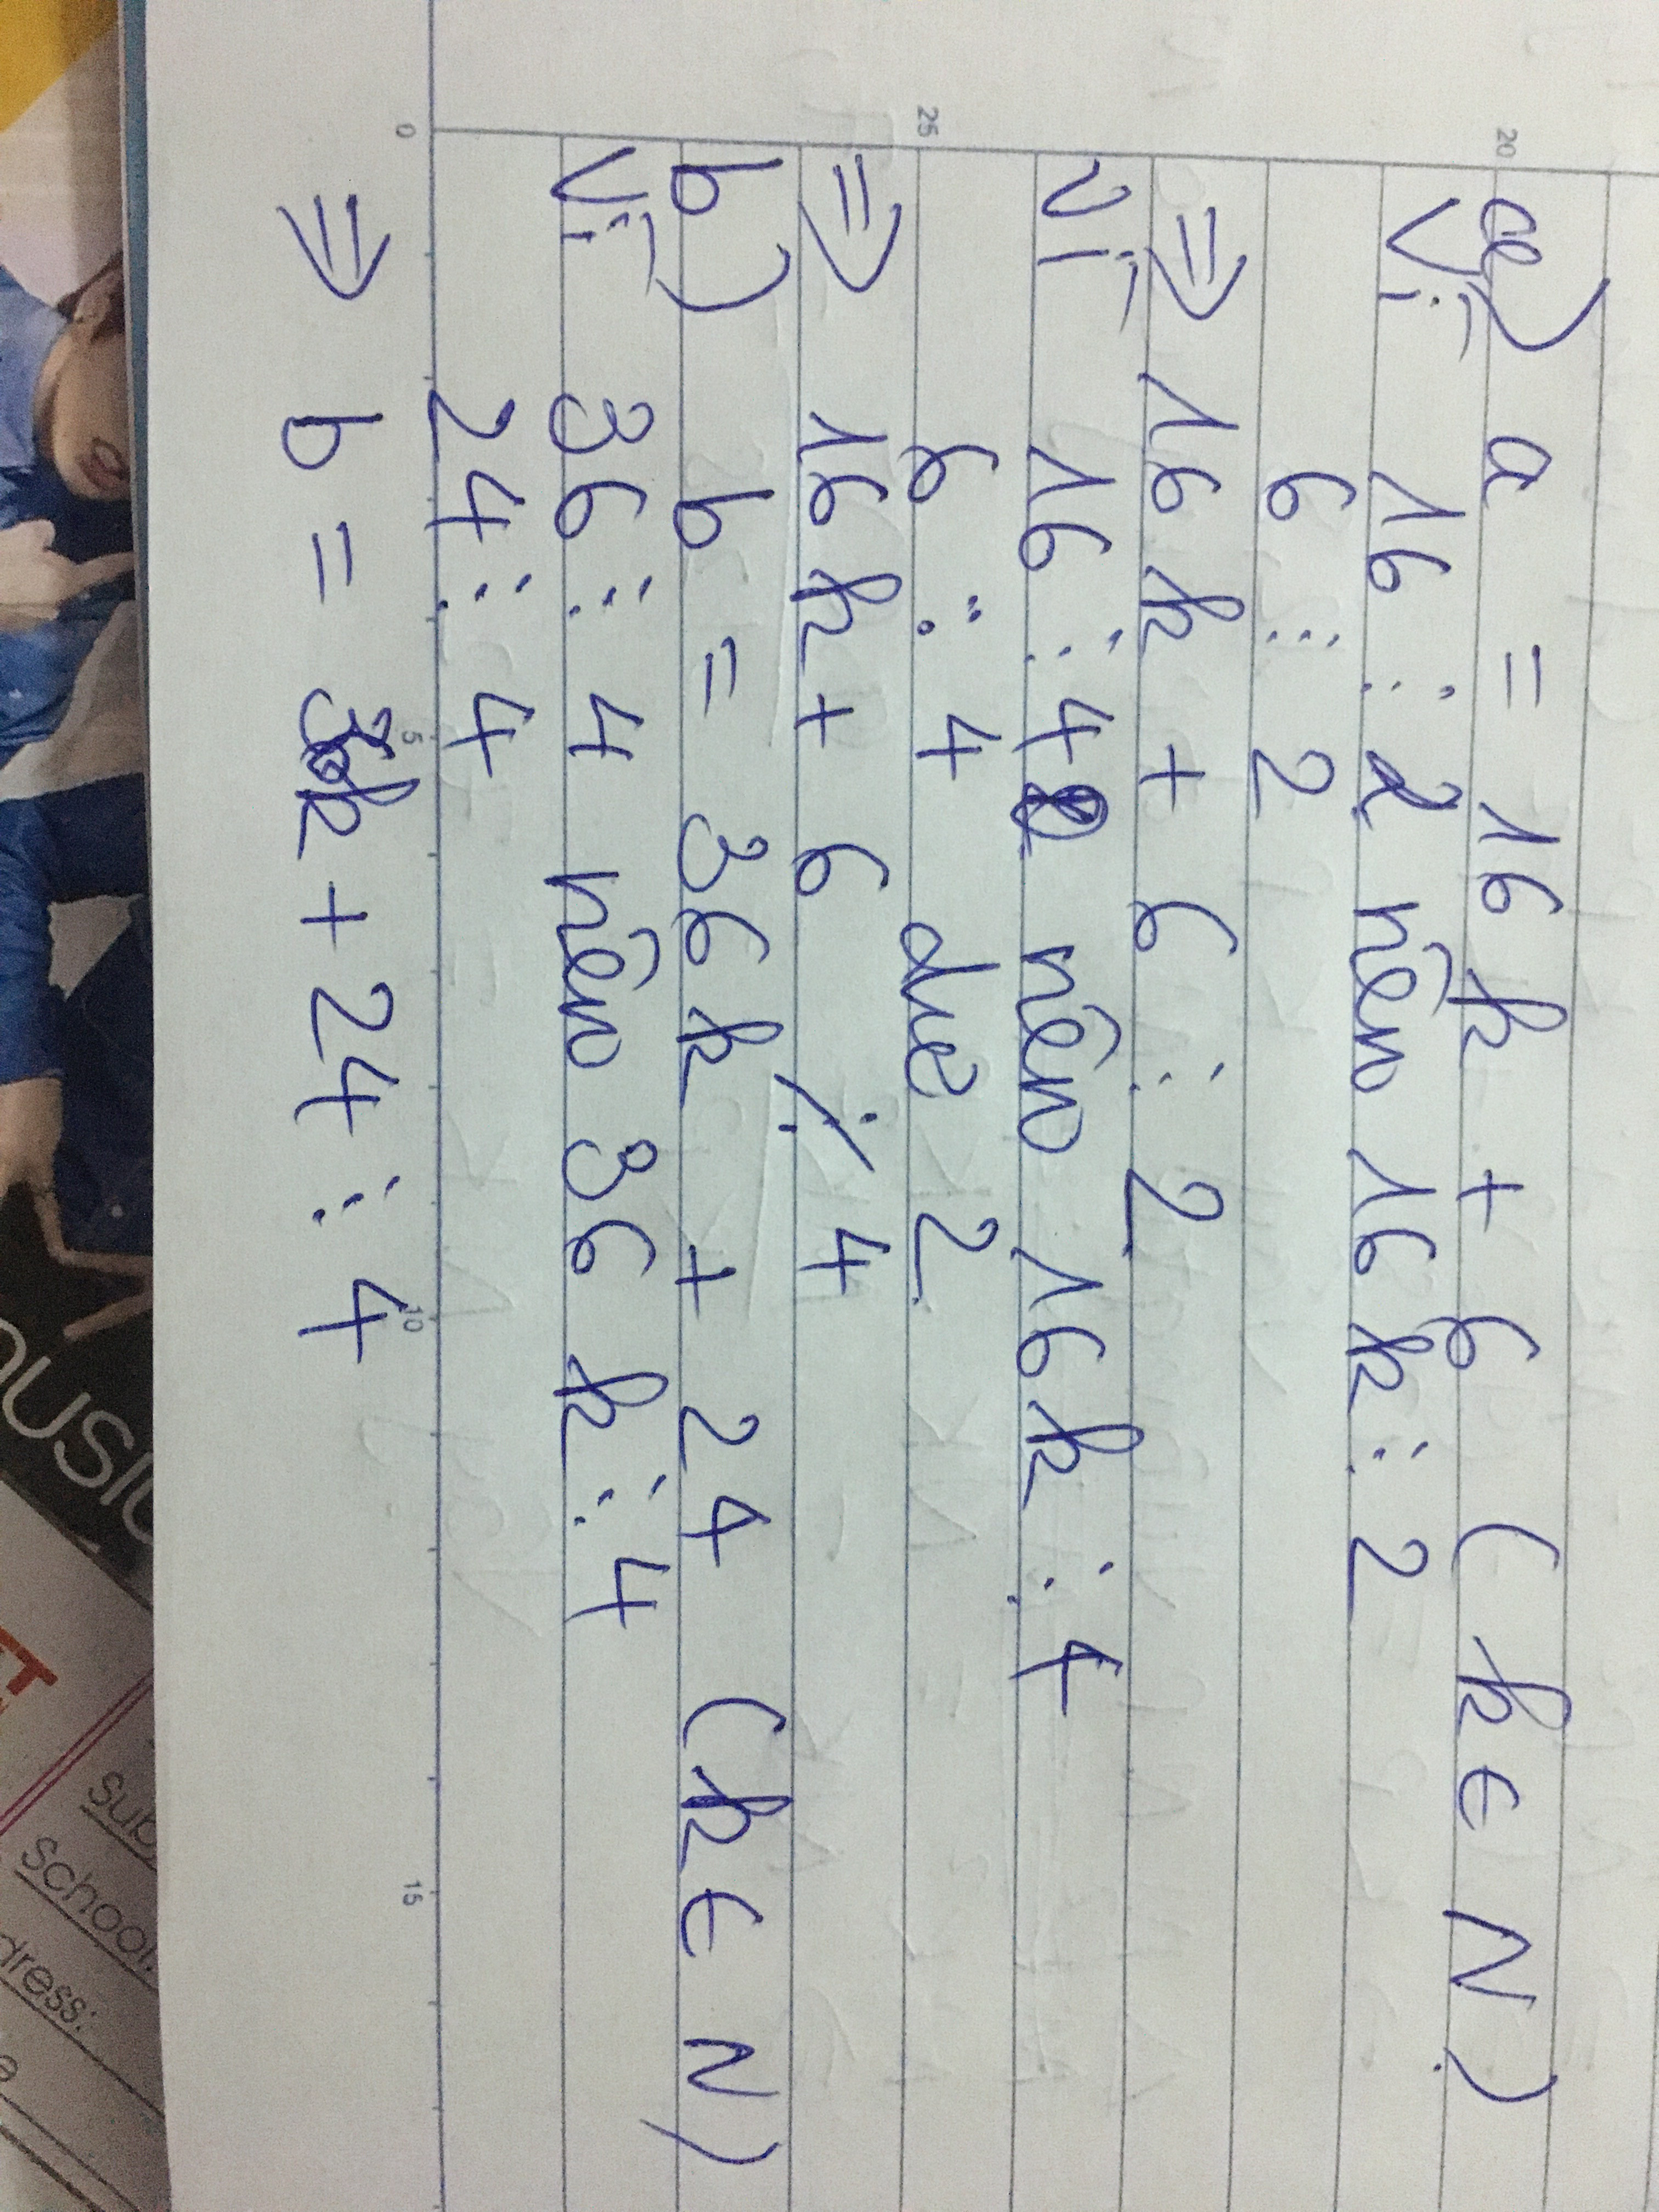 a) a = 16k + 6 (k ∈ N)
Vì 16 ⋮ 2 nên 16k ⋮ 2
6 ⋮ 2
⇒ 16k + 6 ⋮ 2
Vì 16 ⋮ 4 nên 16k ⋮ 4
6 : 4 dư 2
⇒ 16k + 6 ⋮̸ 4
b) b = 36k + 24 (k ∈ N)
Vì 36 ⋮ 4 nên 36k ⋮ 4
24 ⋮ 4
⇒ b = 36k + 24 ⋮ 4
20
25
0
5
10
15
School: